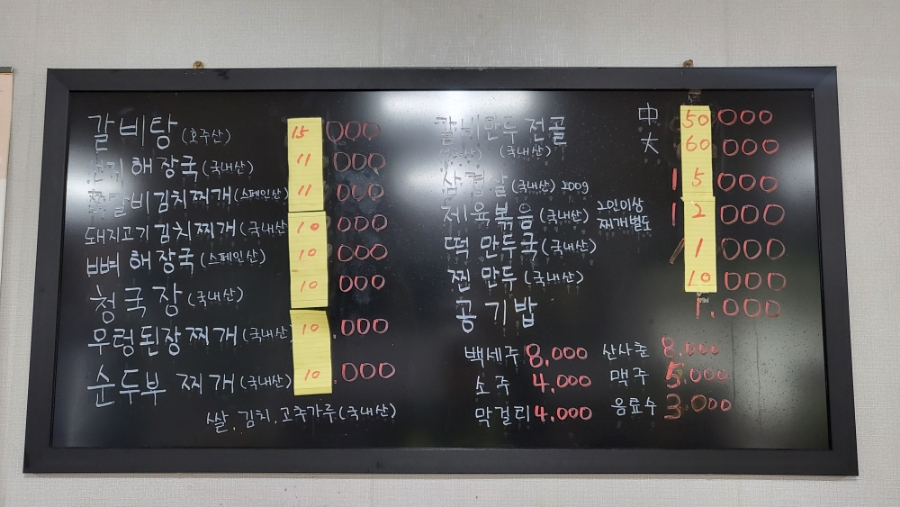 갈비탕 (호주산) 15 000
해장국 (국내산) 11 000
쪽갈비김치찌개 (스페인산) 11 000
돼지고기 김치찌개 (국내산 10 000
뼈 해장국 (스페인산) 10 000
청국장 (국내산) 10 000
우렁된장찌개 (국내산) 10 .000
순두부 찌개 (국내산) 10 .000
쌀, 김치, 고추가루 (국내산)
갈비만두전골 中 50 000
(국내산) 大 60 000
삼겹살 (국내산) 200g 1 5 000
제육볶음 (국내산) 2인이상 찌개별도 1 2 000
떡 만두국 (국내산) 1 1 000
찐 만두 (국내산) 10 000
공기밥 1.000
백세주 8,000 산사춘 8.000
소주 4,000 맥주 5,000
막걸리 4,000 음료수 3000